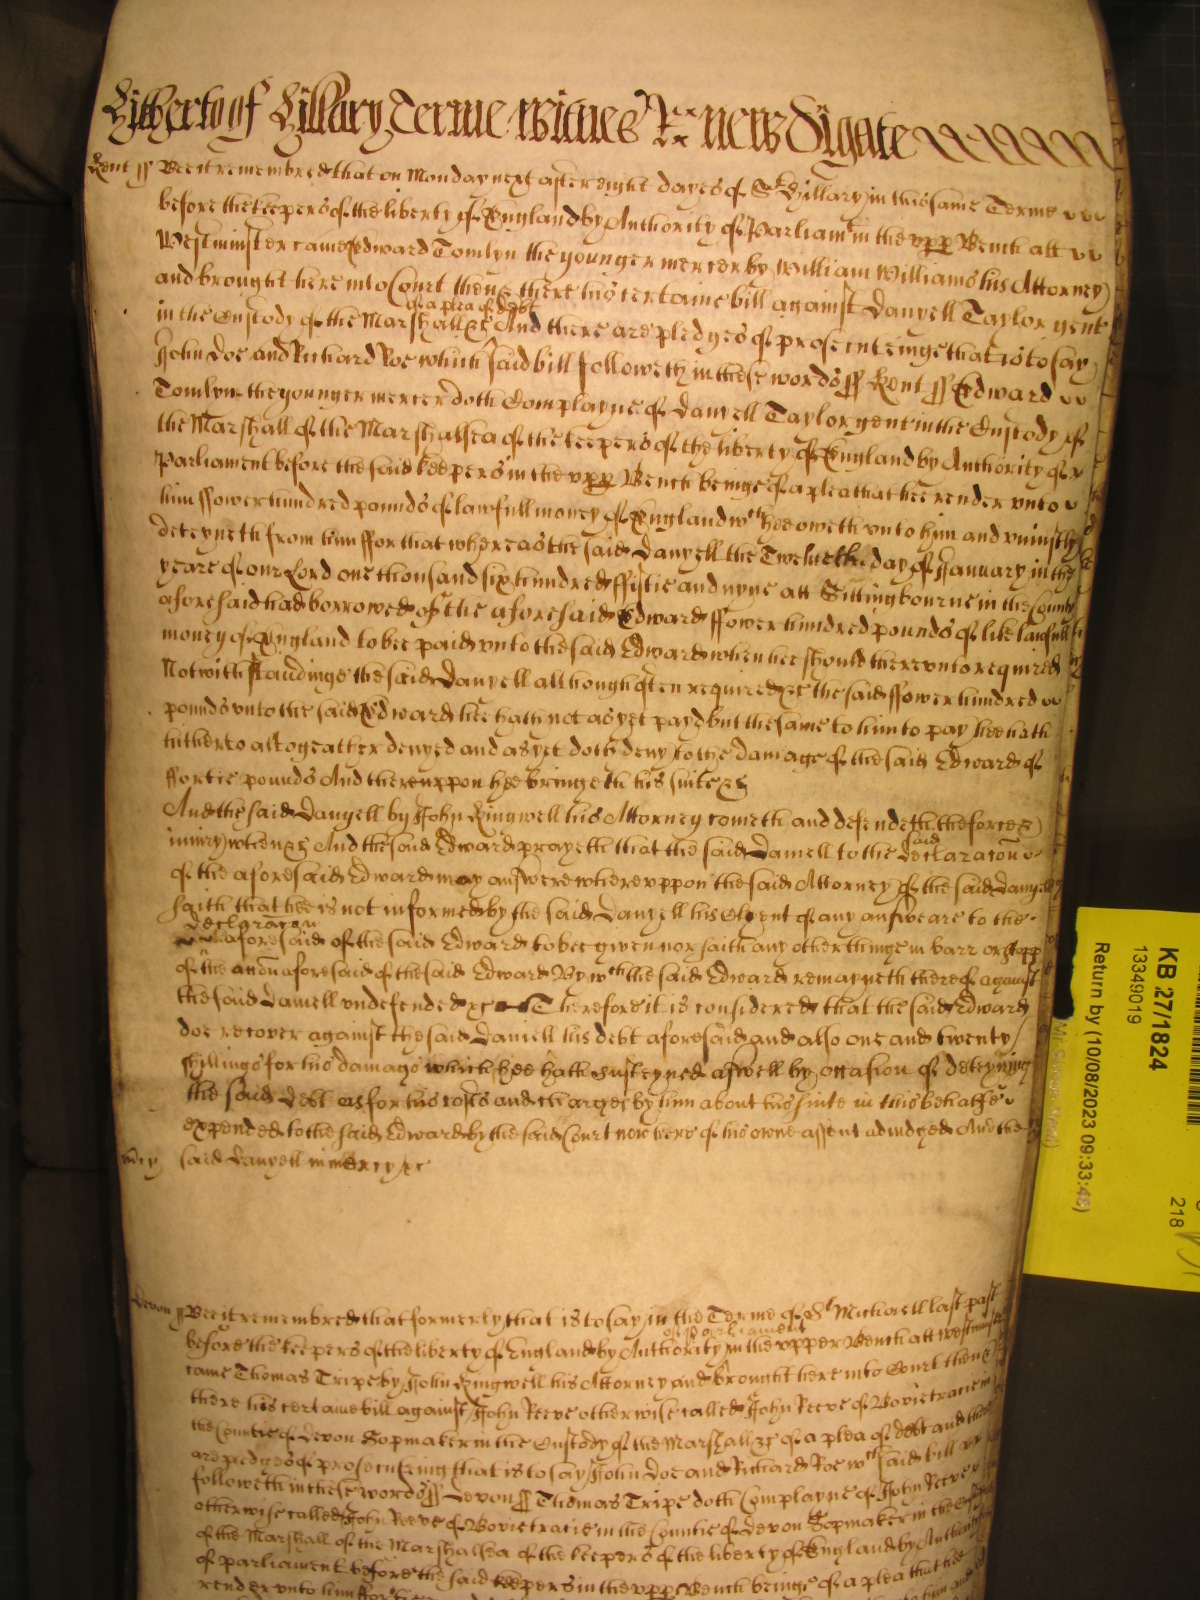 Hitherto of Hillary Terme witnes R: new digate
Kent ss Bee it remembred that on Monday next after eight dayes of St Hillary in this same Terme
before the keepers of the liberty of England by Authority of Parliamt in the upp Bench att
Westminster came Edward Tomlyn the younger mercer by William Williams his Attorney
and brought here into Court then &c there his certaine bill against Danyell Taylor gent
of a plea of debt
in the Custody of the Marshall &c And there are pledges of prosecuteinge that is to say
John Doe and Richard Roe which said bill followeth in these words ss Kent ss Edward
Tomlyn the younger mercer doth Complayne of Danyell Taylor gent in the Custody of
the Marshall of the Marshalsea of the keepers of the liberty of England by Authority of
Parliament before the said keepers in the upp Bench beinge of a plea that hee render unto
him ffower hundred pounds of lawfull money of England wch hee oweth unto him and uniustly
deteyneth from him ffor that whereas the said Danyell the Twelueth day of January in the
yeare of our Lord one thousand six hundred ffiftie and nyne att Sittingbourne in the County
aforesaid had borrowed of the aforesaid Edward ffower hundred pounds of like lawfull
money of England to bee paid unto the said Edward when hee should thereunto required
Notwithstandinge the said Danyell although often required &c the said ffower hundred
pounds unto the said Edward hee hath not as yet payd but the same to him to pay hee hath
hitherto altogeather denyed and as yet doth deny to the damage of the said Edward of
ffortie pounds And thereuppon hee bringeth his suite &c
And the said Danyell by John Kingwell his Attorney cometh and defendeth the force &
iniury when &c And the said Edward prayeth that the said Daniell to the said declaracon
of the aforesaid Edward may answere whereuppon the said Attorney of the said Danyell
saith that hee is not informed by the said Danyell his Clyent of any answeare to the
declaracon
aforesaid of the said Edward to bee given nor saith any other thinge in barr or stopp
of the accon aforesaid of the said Edward By wch the said Edward remayneth thereof against
the said Daniell undefended &c Therefore it is considered that the said Edward
doe recover against the said Daniell his debt aforesaid and also one and twenty
shillings for his damage which hee hath susteyned aswell by occasion of deteyning
the said debt as for his costs and charges by him about his suite in this behalfe
expended to the said Edward by the said Court now here of his owne assent adiudged And the
mercy said Danyell in mercy &c
Devon ss Bee it remembred that formerly that is to say in the Terme of St Michaell last past
of parliament
before the keepers of the liberty of England by Authority in the upper Bench att Westminster
came Thomas Tripe by John Kingwell his Attorney and brought here into Court then &
there his certaine bill against John Reeve otherwise called John Reeve of Bovietracie in
the Countie of Devon Sopmaker in the Custody of the Marshall &c of a plea of debt and there
are pledges of prosecuteing that is to say John Doe and Richard Roe wch said bill
followeth in these words ss Devon ss Thomas Tripe doth Complayne of John Reeve
otherwise called John Reeve of Bovietracie in the Countie of Devon Sopmaker in the Custody
of the Marshall of the Marshalsea of the keepers of the liberty of England by Authority
of parliament before the said keepers in the upp Bench beinge of a plea that hee
render unto him
KB 27/1824
13349019
Return by (10/08/2023 09:33:48)
218